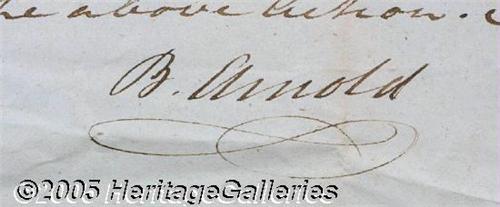 he above Action.
B. Arnold
©2005 HeritageGalleries